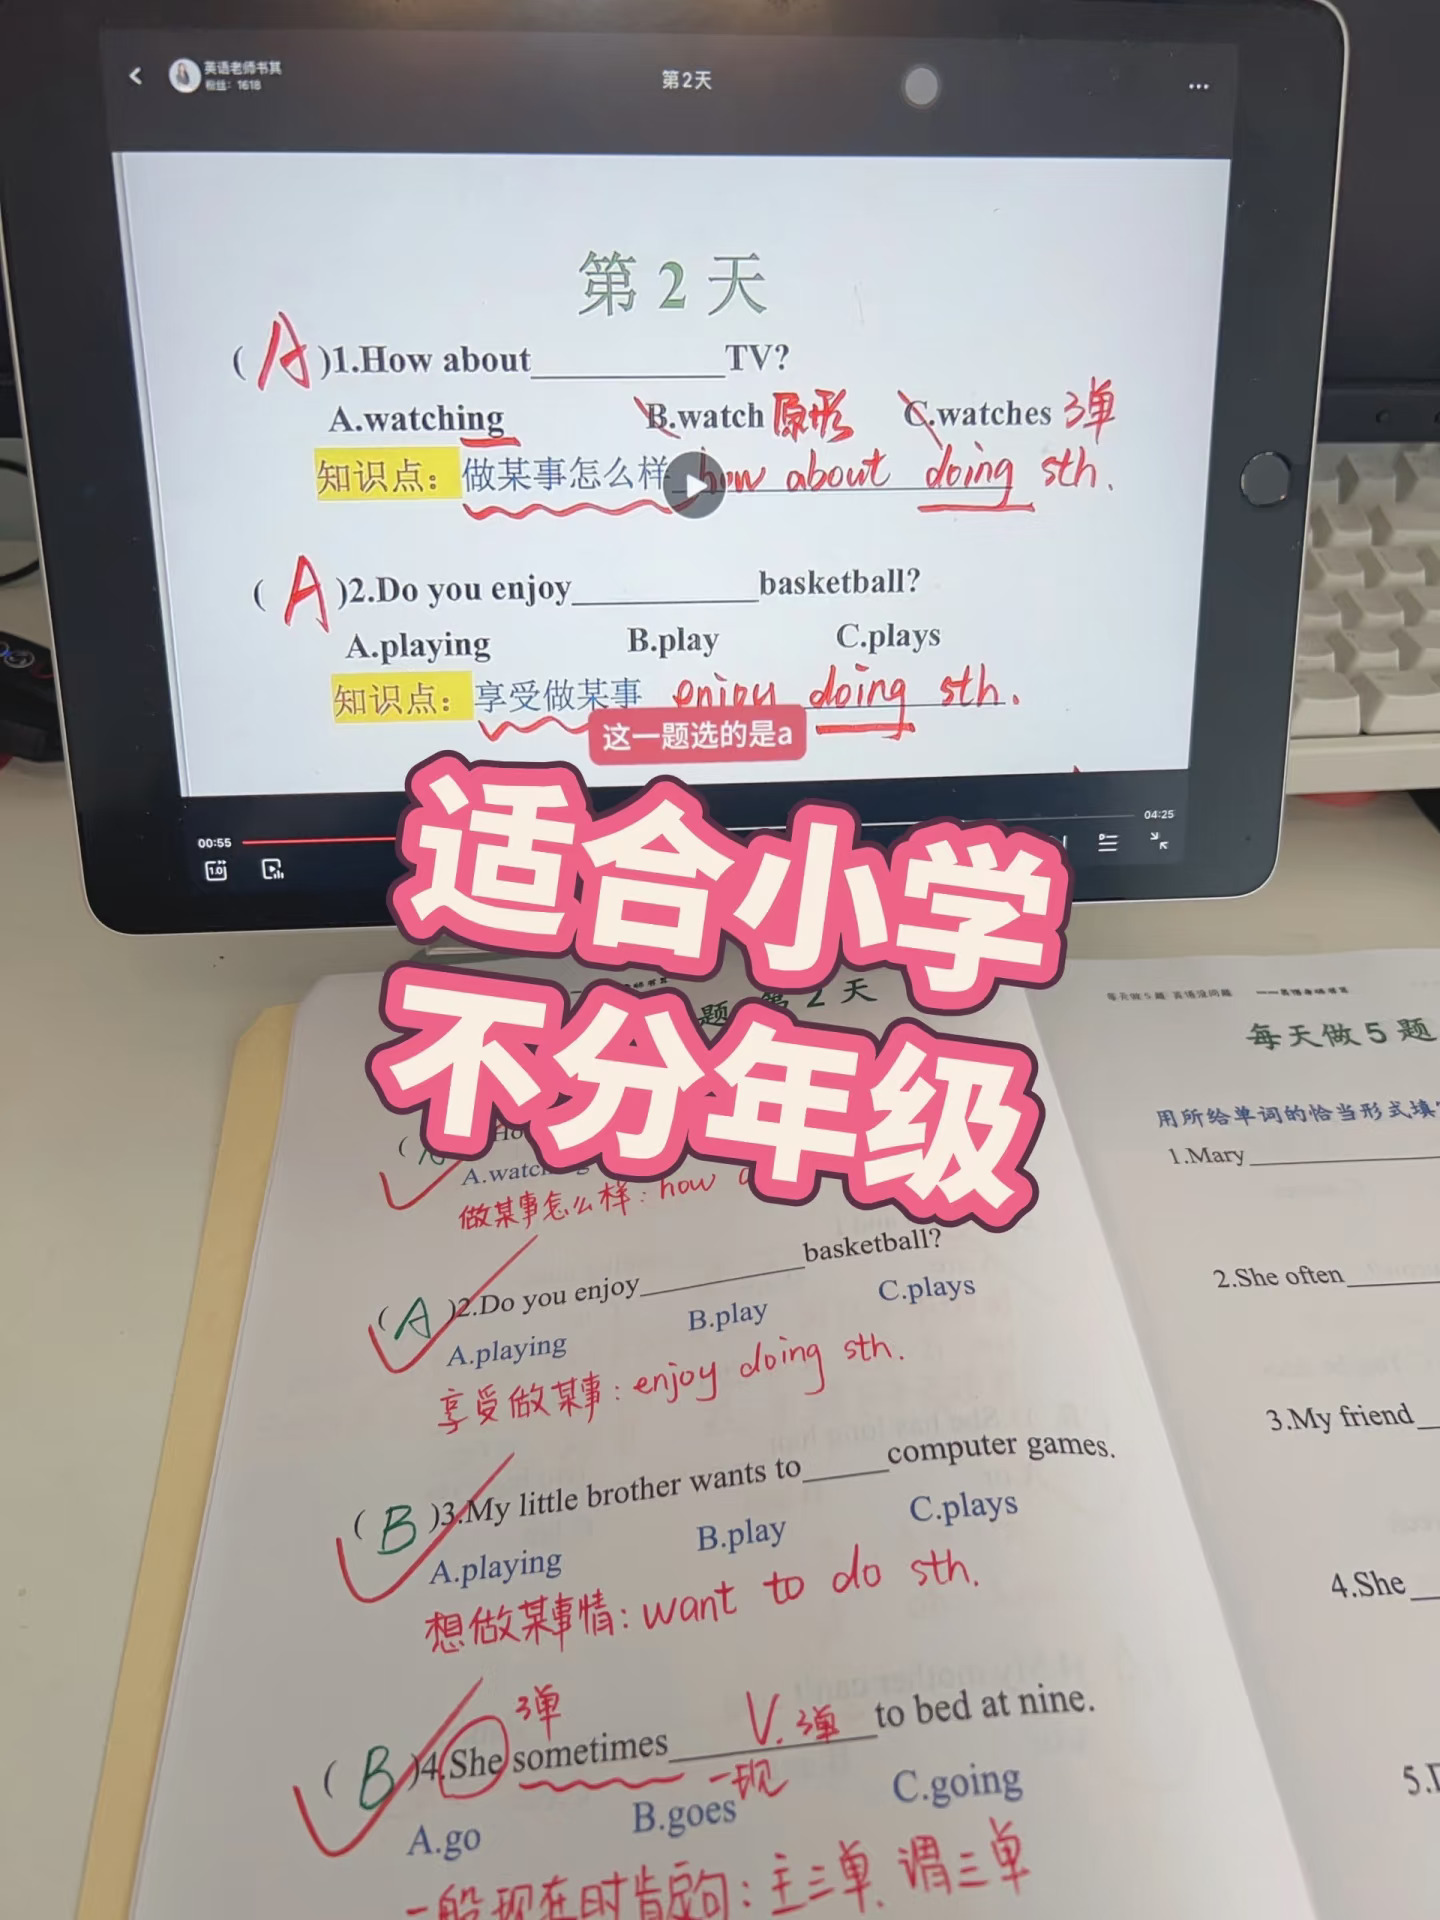 英语老师书其
粉丝：1618
第2天
第 2 天
( A )1.How about__________TV?
A.watching B.watch 原形 C.watches 3单
知识点：做某事怎么样 how about doing sth.
( A )2.Do you enjoy__________basketball?
A.playing B.play C.plays
知识点：享受做某事 enjoy doing sth.
这一题选的是a
00:55
04:25
1.0
适合小学
不分年级
题 第 2 天
( A
A.watching
做某事怎么样：how a
( A )2.Do you enjoy__________basketball?
A.playing B.play C.plays
享受做某事：enjoy doing sth.
( B )3.My little brother wants to_____computer games.
A.playing B.play C.plays
想做某事情：want to do sth.
3单
( B )4.She sometimes__________to bed at nine.
V.3单
一现
A.go B.goes C.going
一般现在时肯定句：主三单、谓三单
每天做5题
用所给单词的恰当形式填
1.Mary
2.She often
3.My friend
4.She
5.